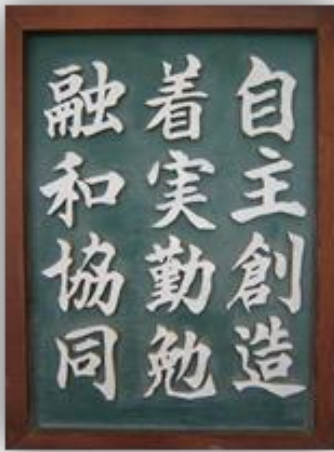 自主創造
着実勤勉
融和協同